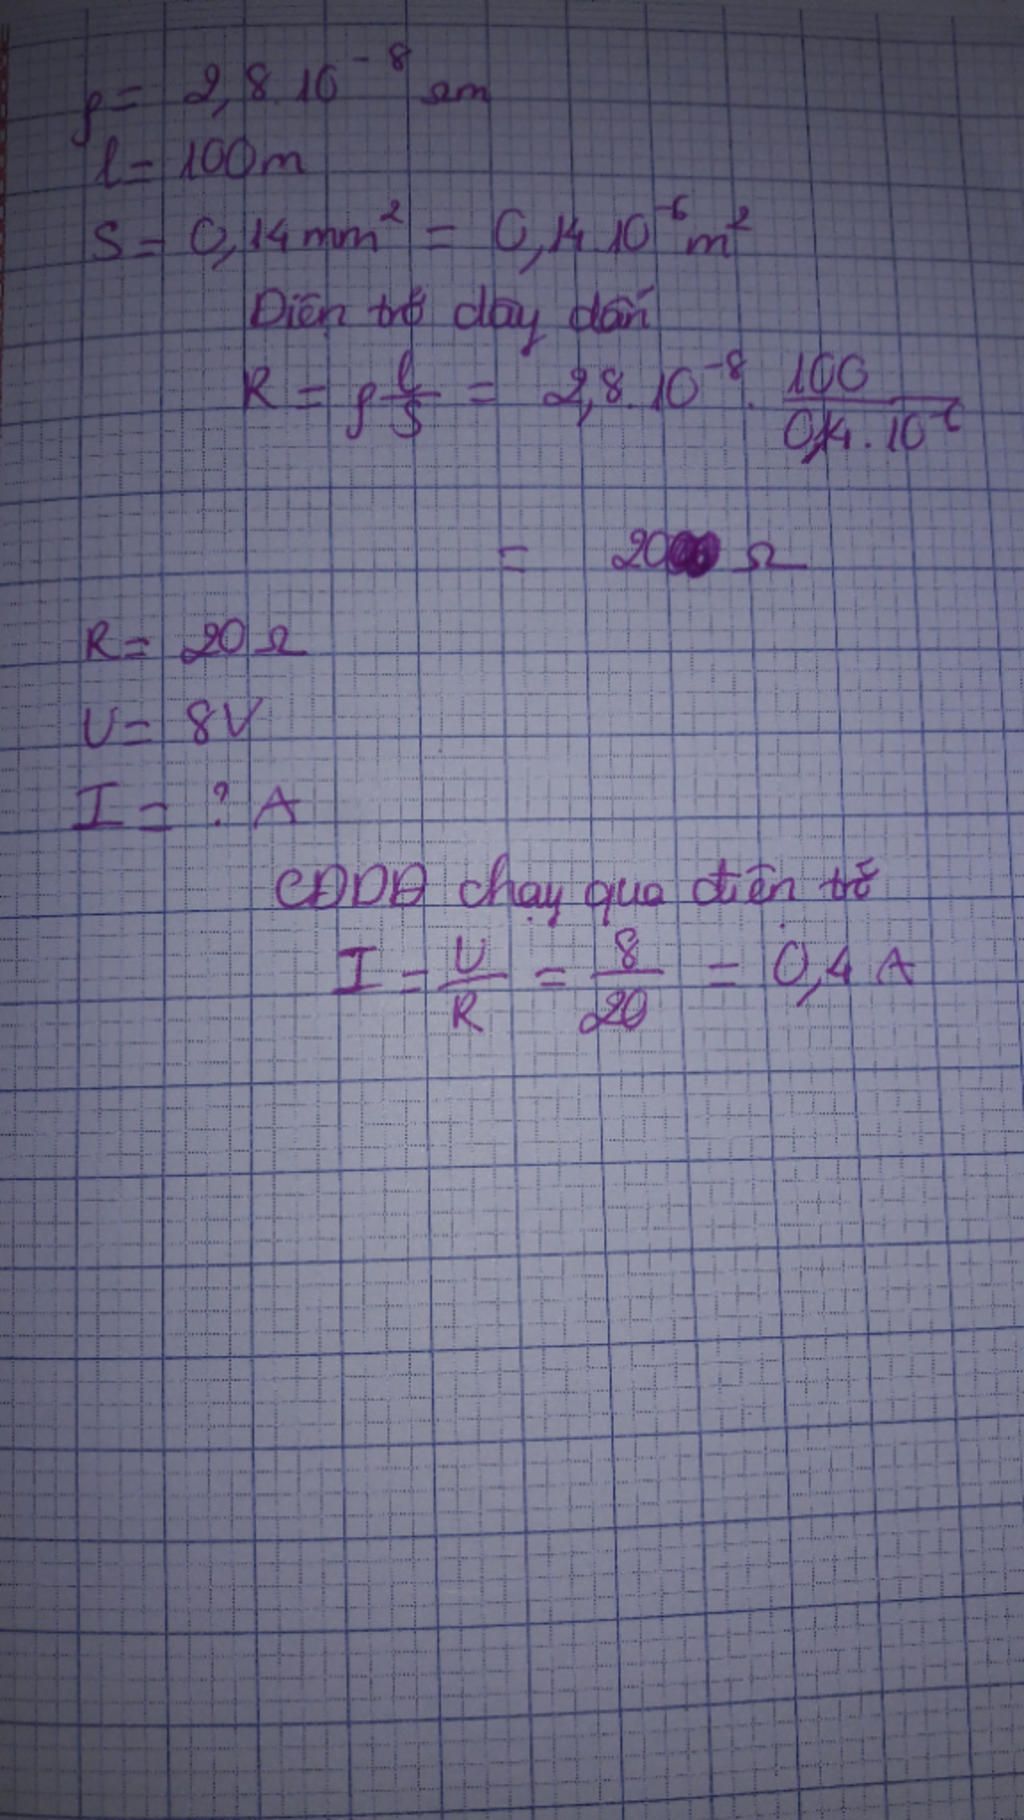 ρ = 2,8.10⁻⁸ Ωm
l = 100m
S = 0,14 mm² = 0,14.10⁻⁶ m²
Điện trở dây dẫn
R = ρ l/S = 2,8.10⁻⁸ . 100/0,14.10⁻⁶
= 20 Ω
R = 20 Ω
U = 8V
I = ? A
CĐDĐ chạy qua điện trở
I = U/R = 8/20 = 0,4 A